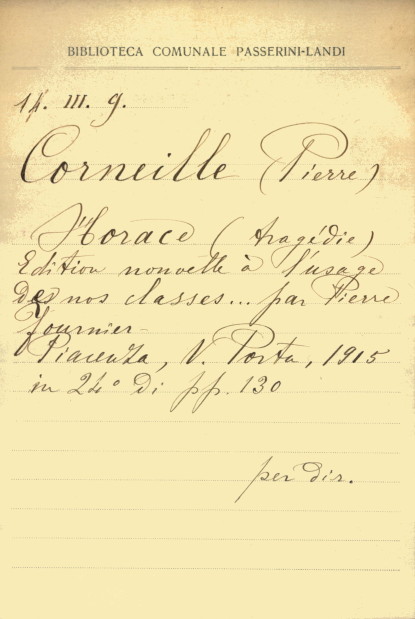 BIBLIOTECA COMUNALE PASSERINI-LANDI
14. III. 9.
Corneille (Pierre)
Horace (tragédie)
Edition nouvelle à l'usage
des nos classes... par Pierre
Fournier-
Piacenza, V. Porta, 1915
in 24° di pp. 130
per dir.